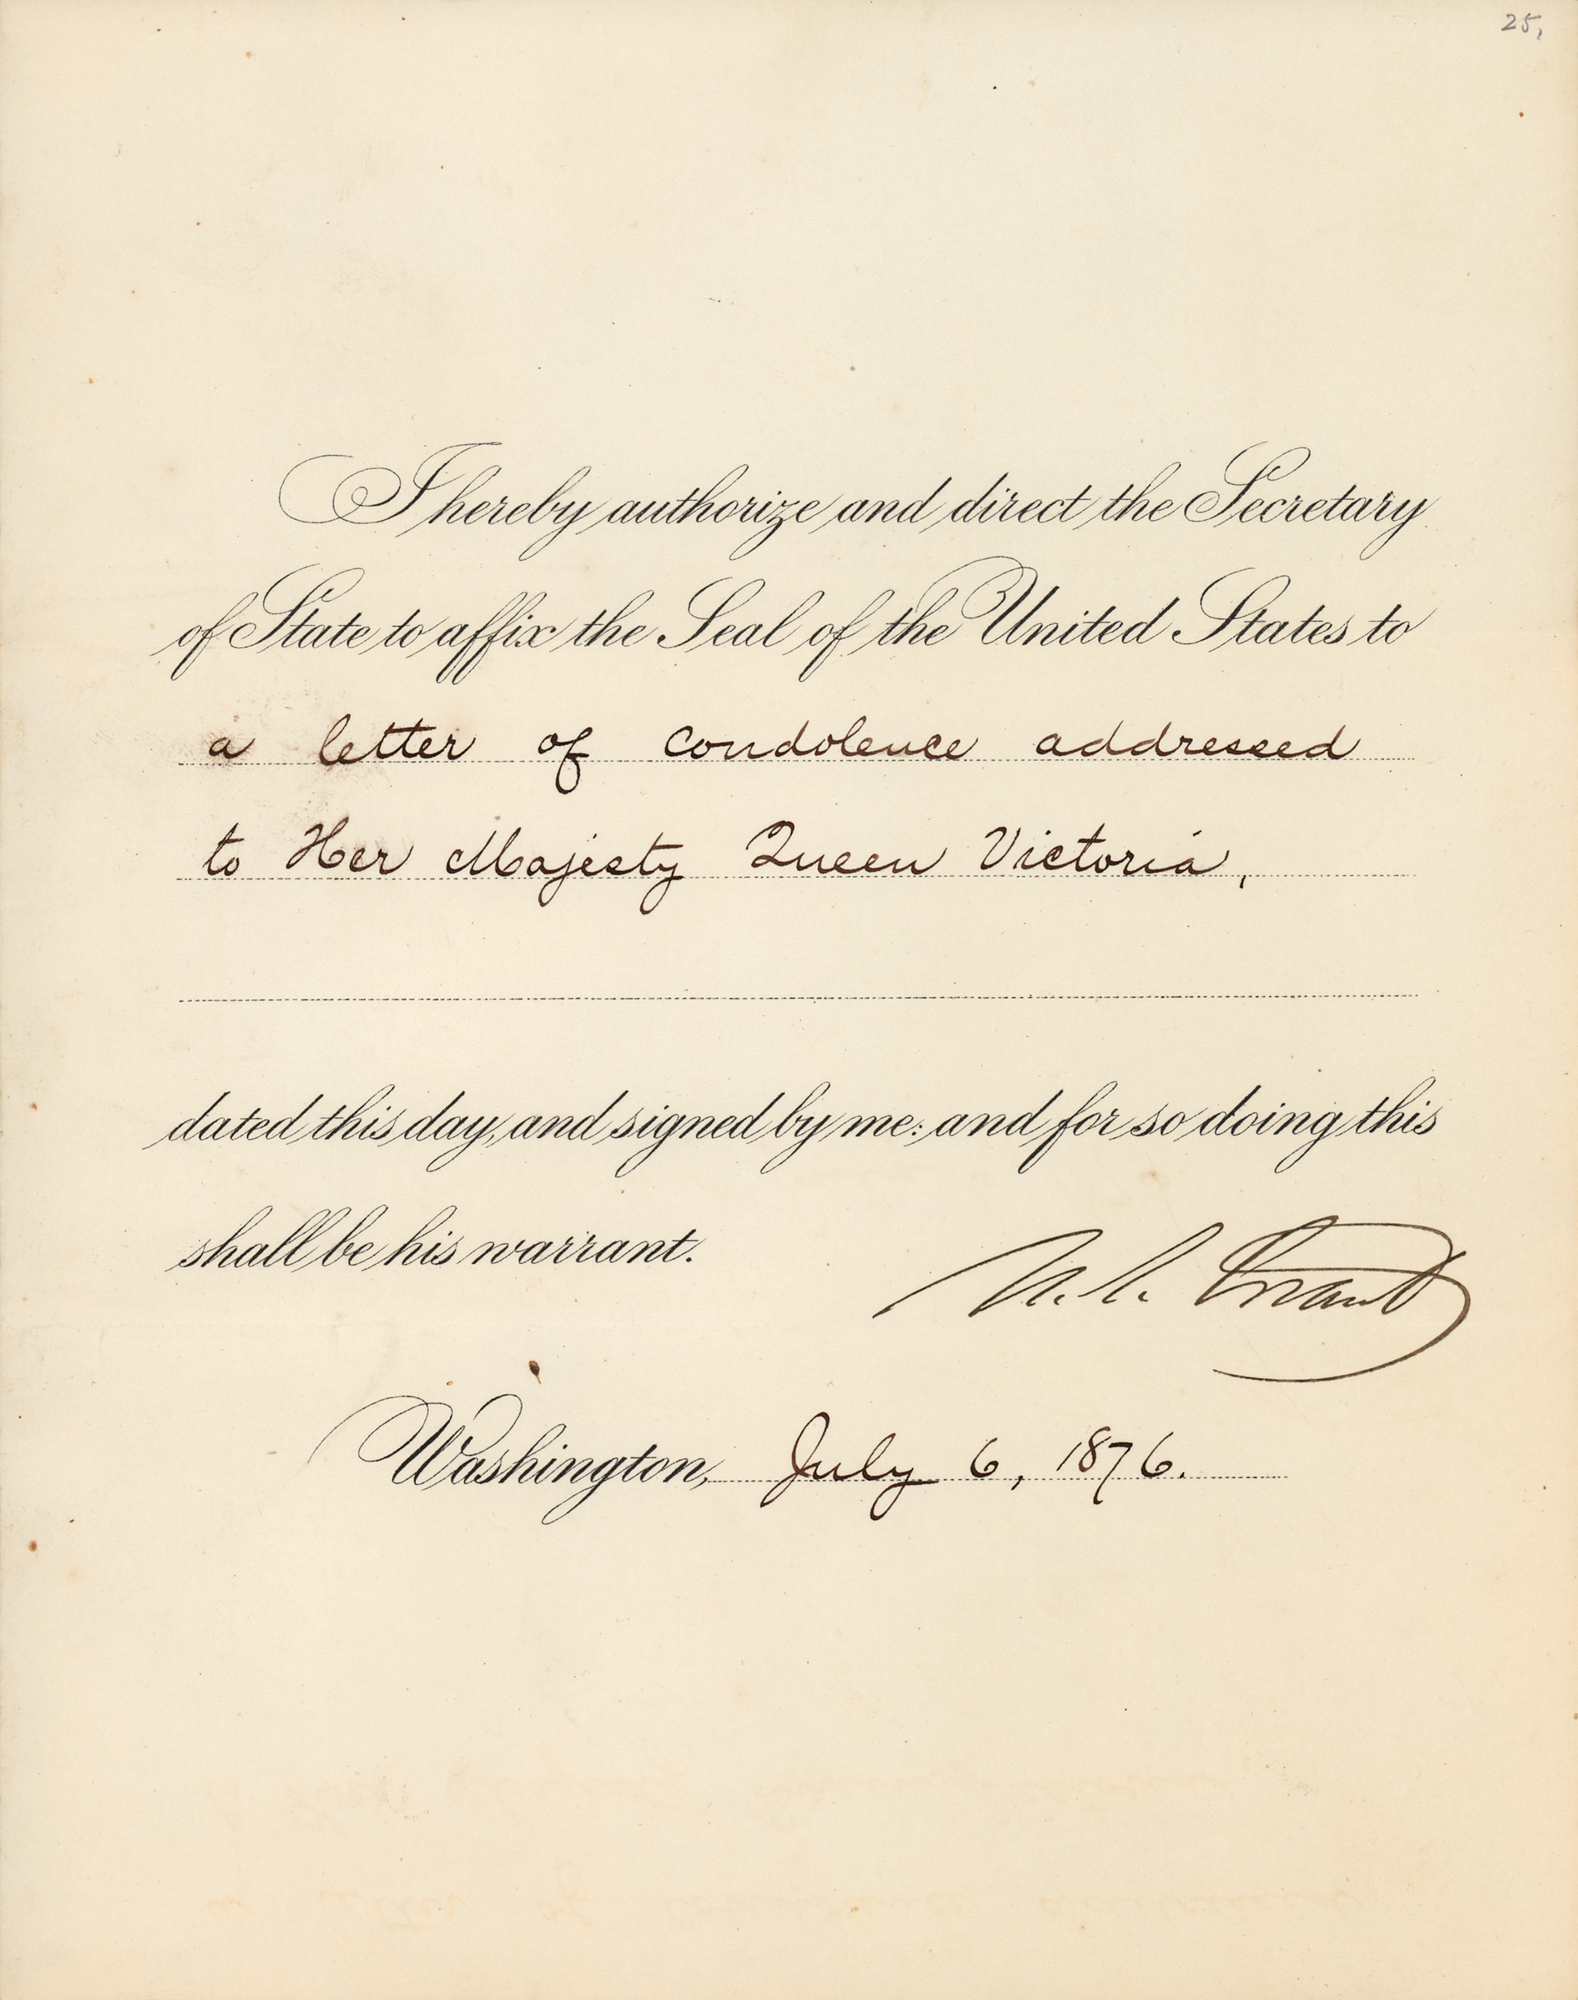 25,
I hereby authorize and direct the Secretary
of State to affix the Seal of the United States to
a letter of condolence addressed
to Her Majesty Queen Victoria,
dated this day, and signed by me: and for so doing this
shall be his warrant.
U. S. Grant
Washington, July 6, 1876.